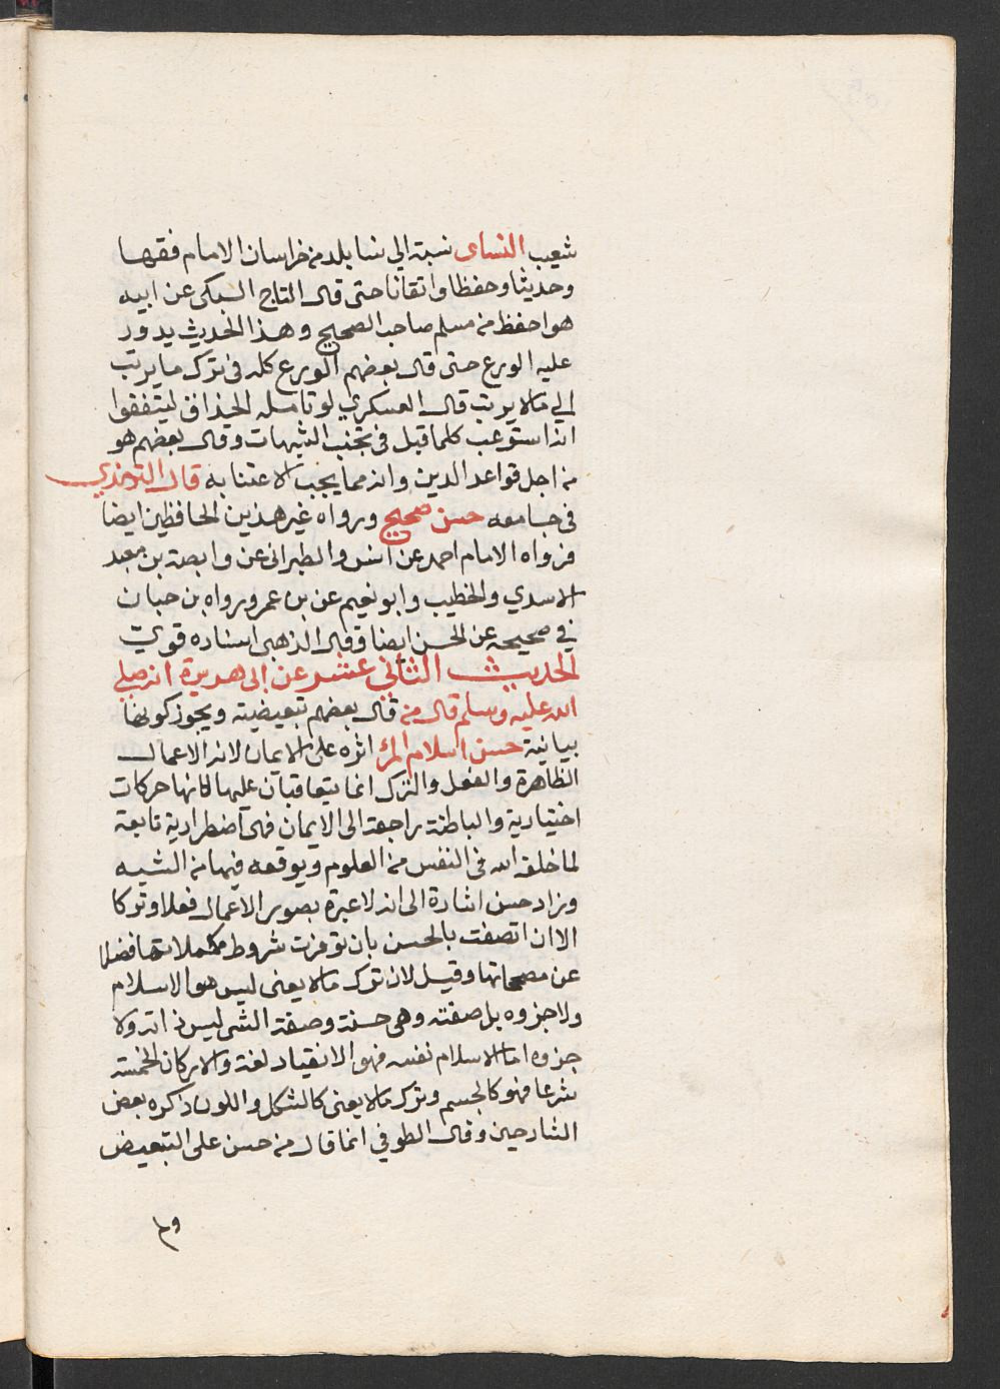 شعيب النساى نسبة الي نسا بلد من خراسان الامام فقها
وحديثا وحفظا واتقانا حتى قال التاج السبكى عن ابيه
هو احفظ من مسلم صاحب الصحيح وهذا الحديث يدور
عليه الورع حتى قال بعضهم الورع كله فى ترك ما يريب
الي مالا يريب قال العسكري لو تامله الحذاق لتيقنوا
انه استوعب كلما قيل فى تجنب الشبهات وقال بعضهم هو
من اجل قواعد الدين وانه مما يجب الاعتنا به قال الترمذي
فى جامعه حسن صحيح ورواه غير هذين الحافظين ايضا
فرواه الامام احمد عن انس والطبرانى عن وابصة بن معبد
الاسدي والخطيب وابو نعيم عن بن عمر ورواه بن حبان
في صحيحه عن الحسن ايضا وقال الذهبى اسناده قوي
الحديث الثانى عشر عن ابى هريرة انه صلى
الله عليه وسلم قال من قال بعضهم تبعيضية ويجوز كونها
بيانية حسن اسلام المرء اثره على الايمان لانه الاعمال
الظاهرة والفعل والترك انما يتعاقبان عليها لانها حركات
اختيارية والباطنة راجعة الى الايمان فهى اضطرارية تابعة
لما خلقه الله فى النفس من العلوم ويوقعه فيها من الشبه
وزاد حسن اشارة الى انه لا عبرة بصور الاعمال فعلا وتركا
الا ان اتصفت بالحسن بان توفرت شروط مكملاتها فضلا
عن مصححاتها وقيل لان ترك مالا يعنى ليس هو الاسلام
ولا جزوه بل صفته وهى حسنة وصفة الشى ليس ذاته ولا
جزوه اما الاسلام نفسه فهو الانقياد لغة والاركان الخمسة
شرعا فهو كالجسم وترك مالا يعنى كالشكل واللون ذكره بعض
الشارحين وقال الطوفي انما قال من حسن على التبعيض